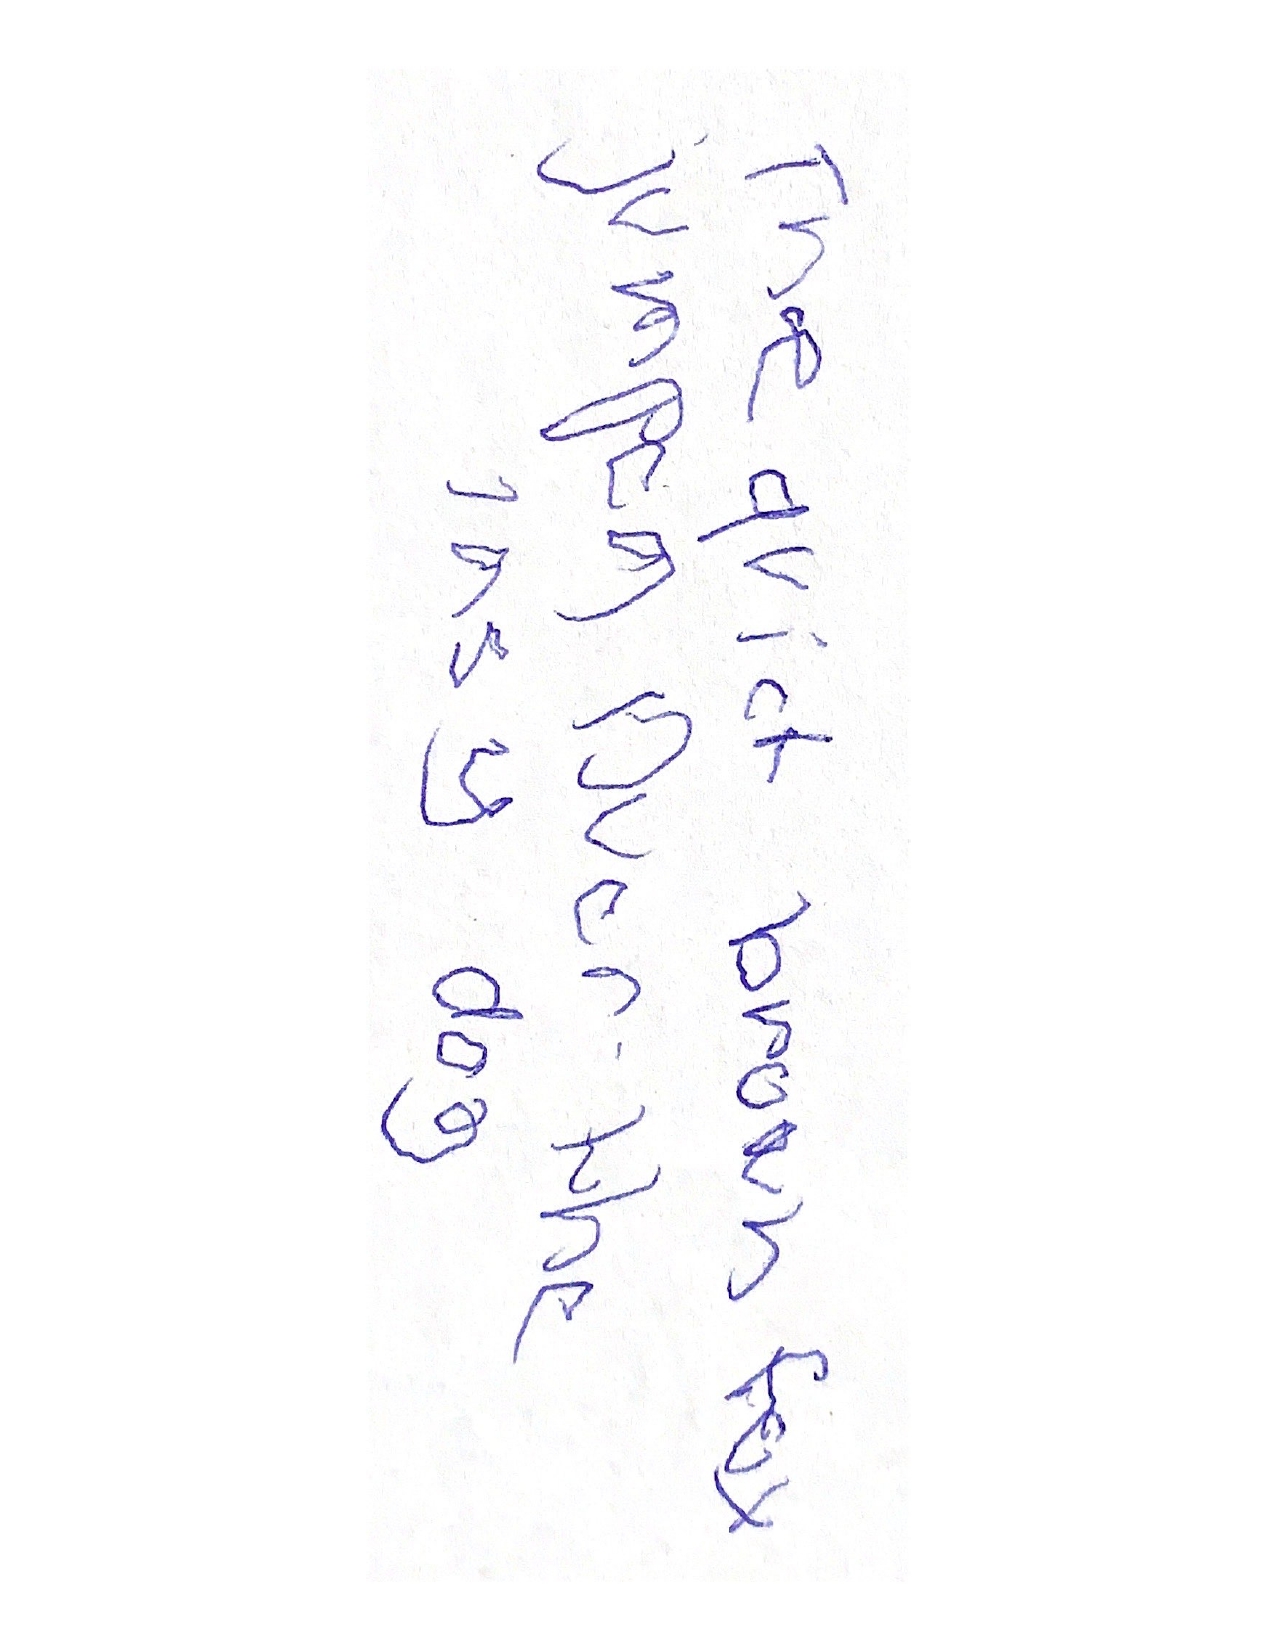 The quick brown fox
jumped over the
lazy dog